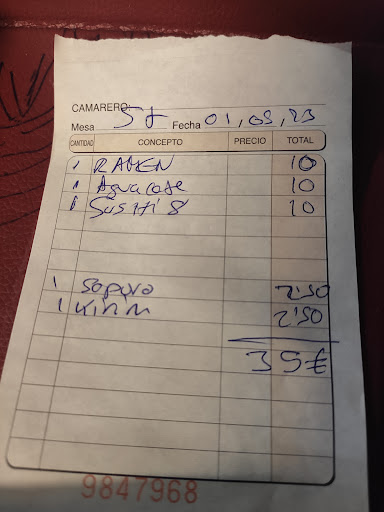 CAMARERO:
Mesa 57 Fecha 01,03,23
CANTIDAD CONCEPTO PRECIO TOTAL
1 RAMEN 10
1 Aguacate 10
1 SUSHI 8 10
1 Saporo 2'50
1 Kirin 2'50
35€
9847968